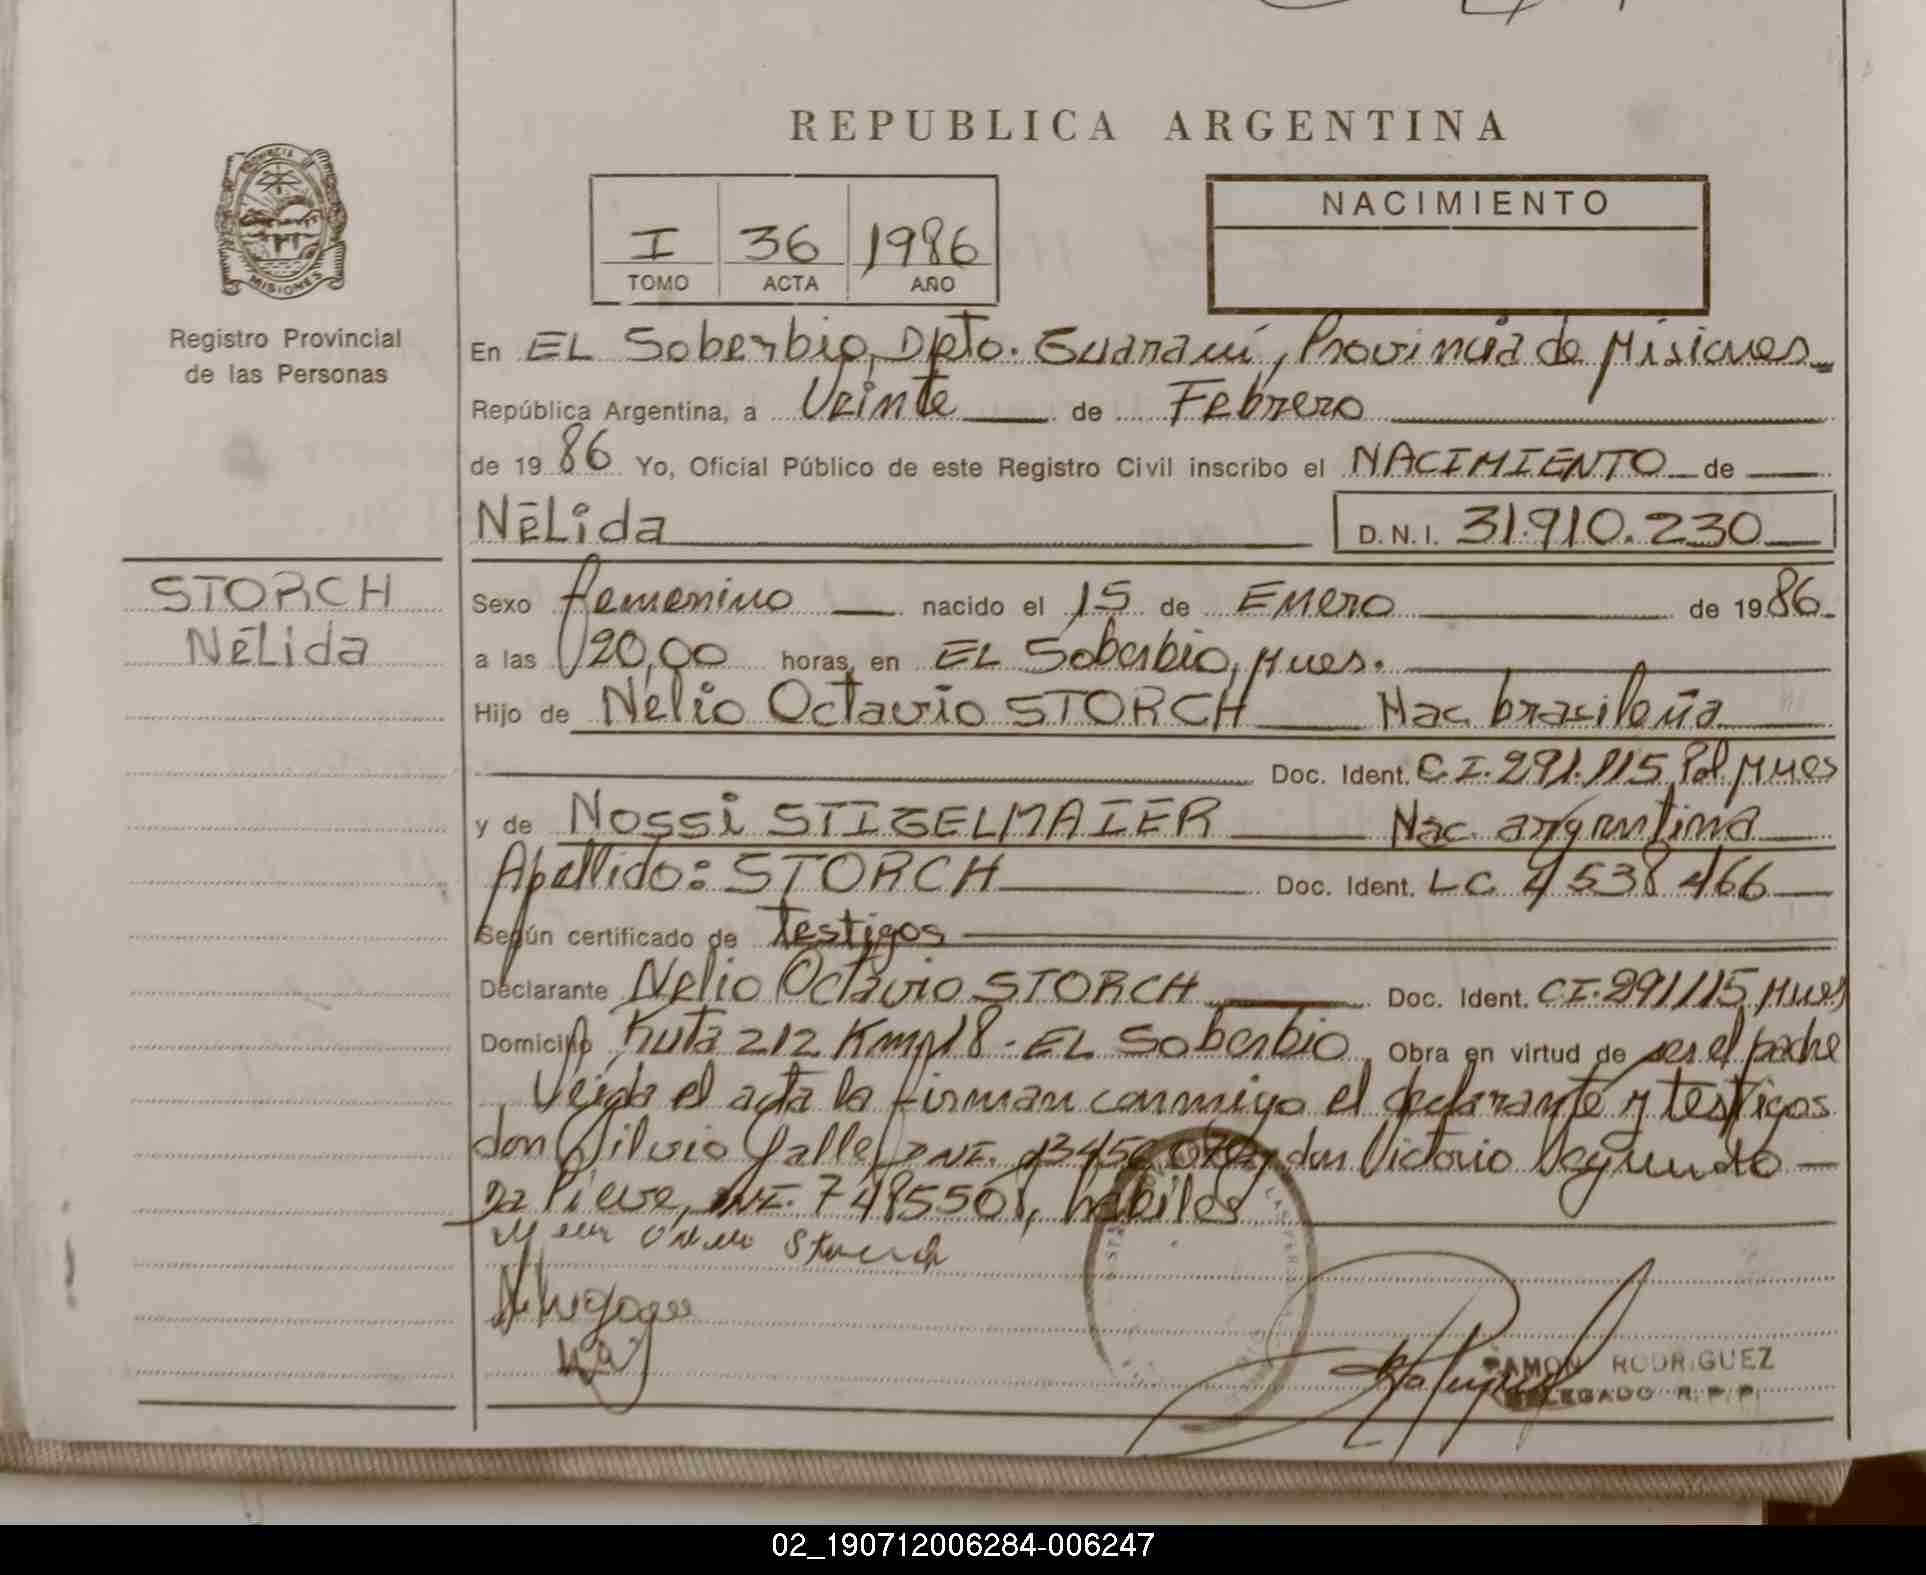 REPUBLICA ARGENTINA
PROVINCIA D
MISIONES
Registro Provincial
de las Personas
I 36 1986
TOMO ACTA AÑO
NACIMIENTO
En EL Soberbio, Dpto. Guaraní, Provincia de Misiones
República Argentina, a Veinte de Febrero
de 19 86 Yo, Oficial Público de este Registro Civil inscribo el NACIMIENTO de
Nélida D.N.I. 31.910.230
STORCH
Nélida
Sexo femenino nacido el 15 de Enero de 19 86
a las 20,00 horas, en EL Soberbio, Mnes.
Hijo de Nélio Octavio STORCH Nac. brasileña
Doc. Ident. C.I. 291.115 Pol. Mnes
y de Nossi STIGELMAIER Nac. argentina
Apellido: STORCH Doc. Ident. LC 4 538 466
Según certificado de testigos
Declarante Nelio Octavio STORCH Doc. Ident. CI. 291115 Mnes
Domicilio Ruta 212 Km 18 - EL Soberbio Obra en virtud de ser el padre
Leída el acta la firman conmigo el declarante y testigos
don Silvio don Victorio Segundo
Da Pieve, 7485501, habiles
Storch
RAMON RODRIGUEZ
DELEGADO R.P.P.
02_190712006284-006247